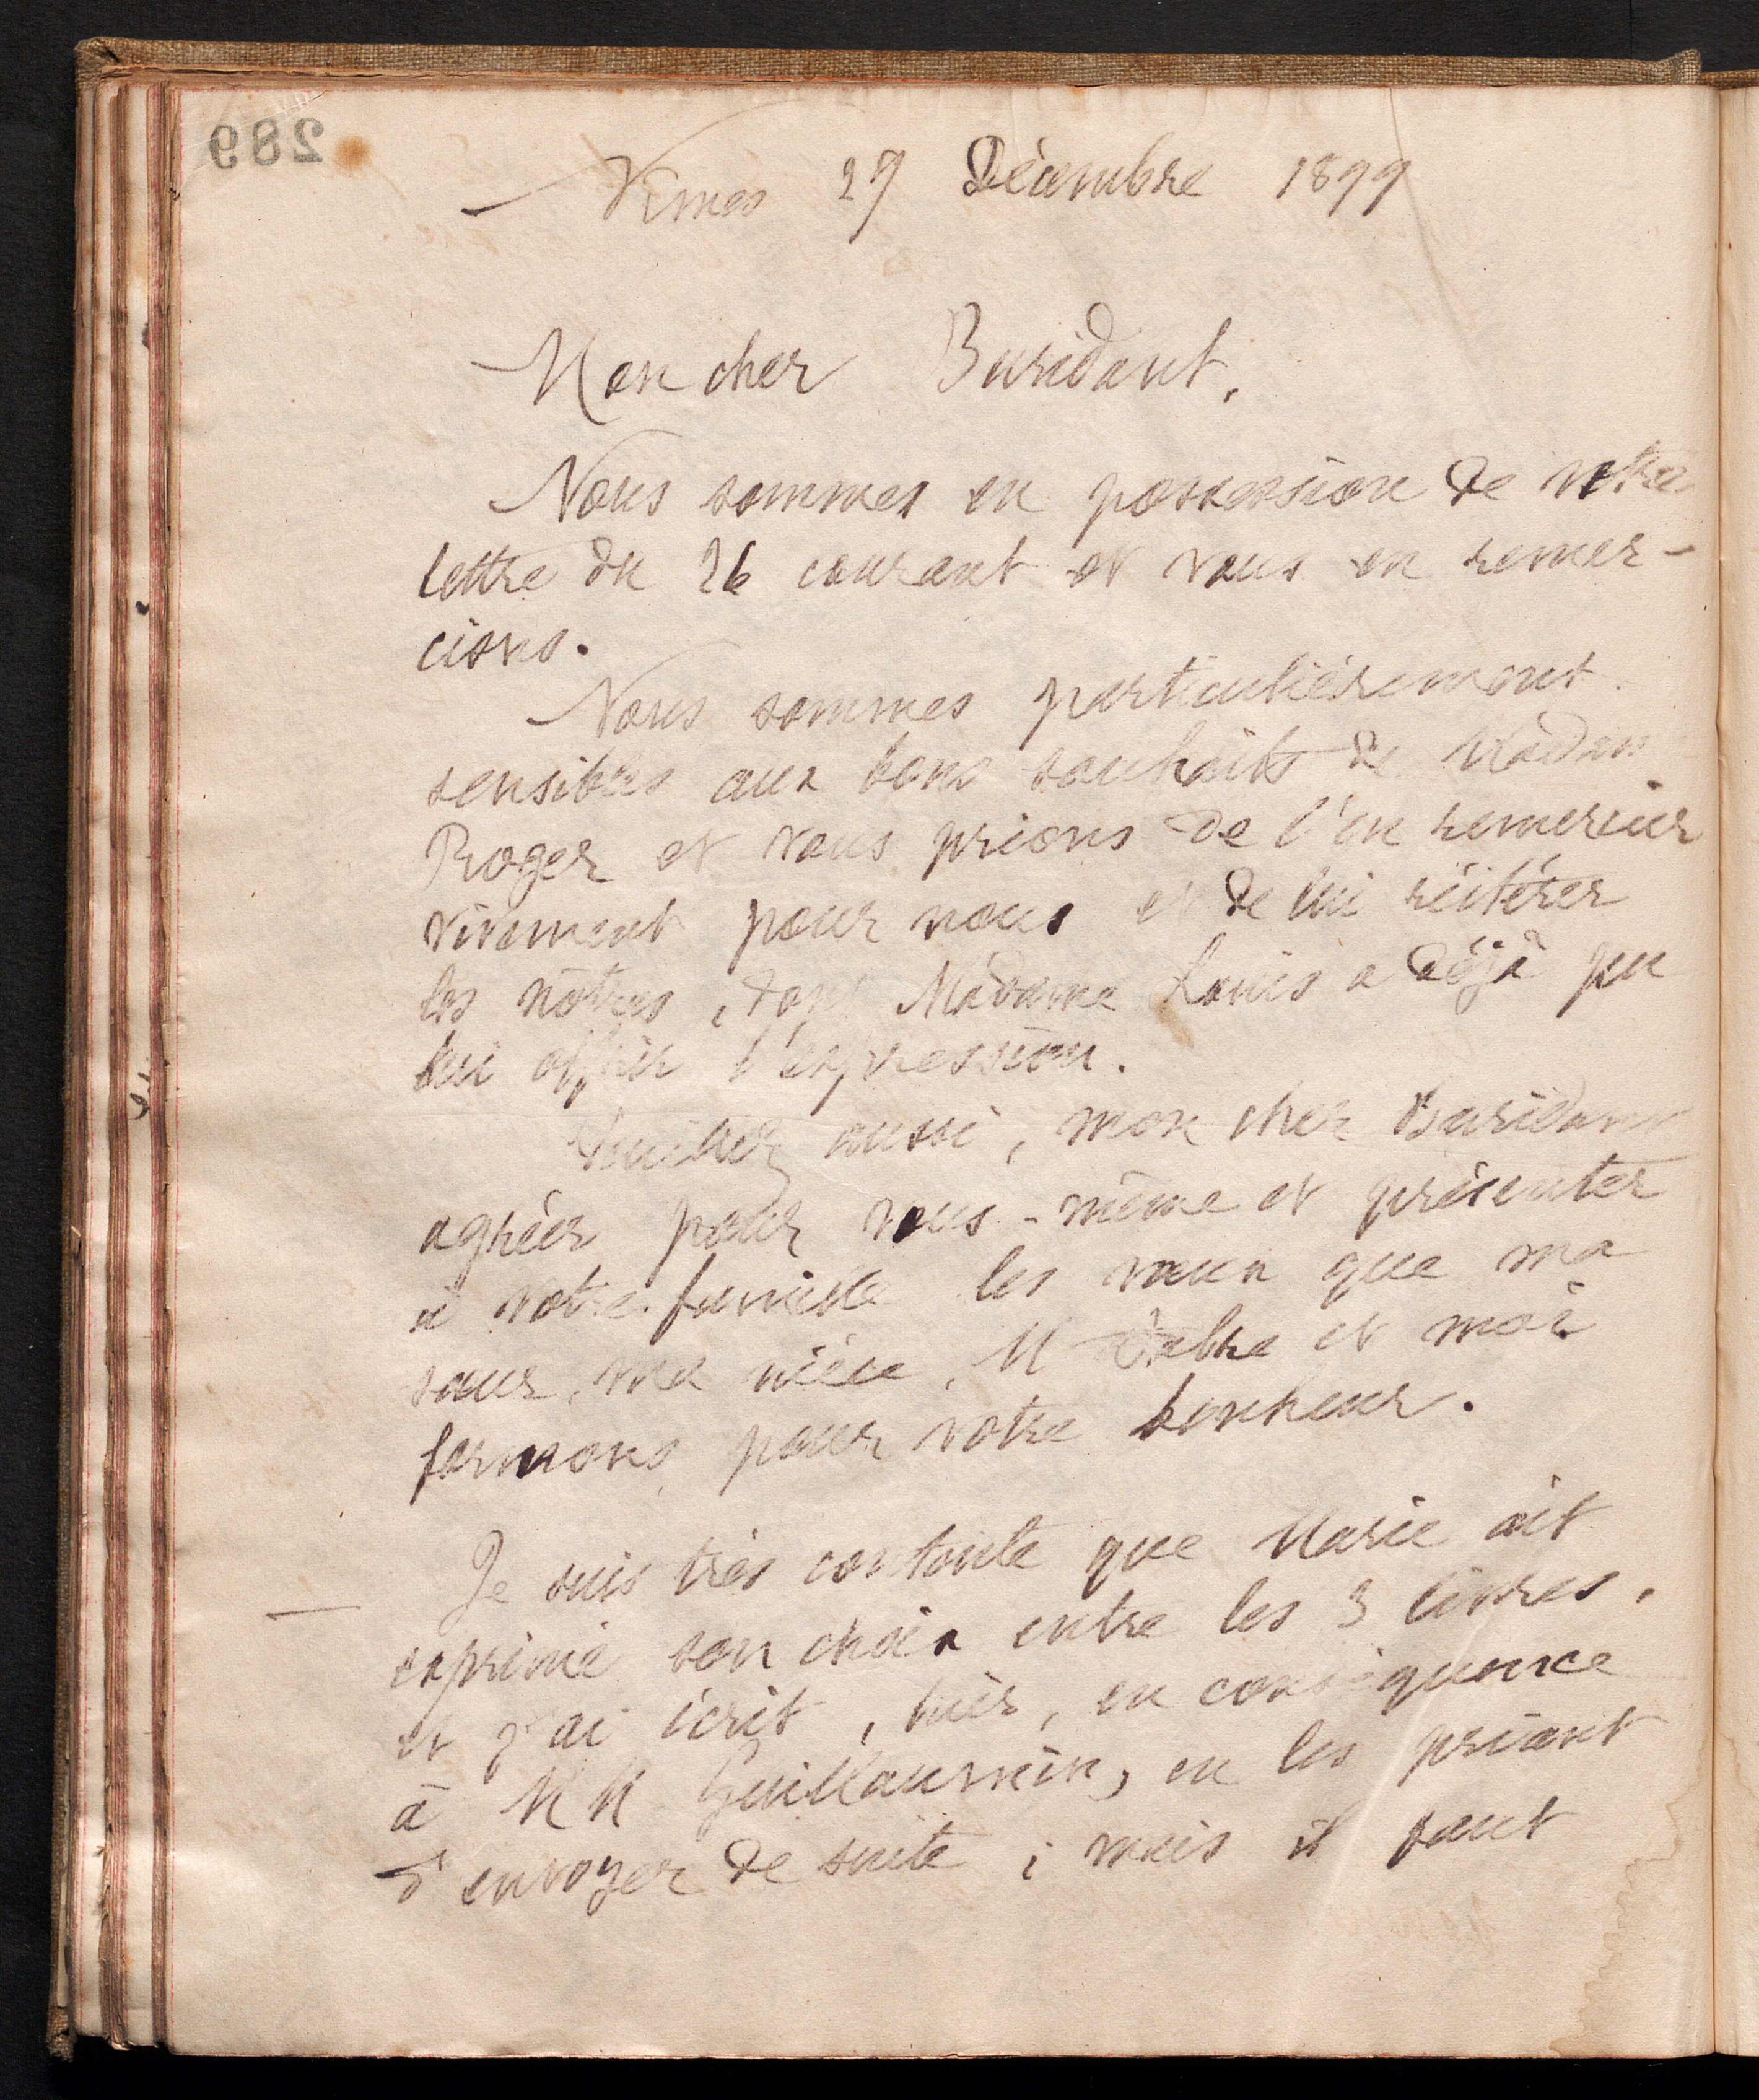 289
Nimes 27 Décembre 1899
Mon cher Buridant,
Nous sommes en possession de votre
lettre du 26 courant et vous en remer-
cions.
Nous sommes particulièrement
sensibles aux bons souhaits de Madam
Roger et vous prions de l'en remercier
vivement pour nous et de lui réitérer
les nôtres, dont Madame Louis a déjà pu
lui offrir l'expression.
Veuillez aussi, mon cher Buridant
agréer pour vous-même et présenter
à votre famille les vœux que ma
sœur, ma nièce, M et moi
formons pour votre bonheur.
Je suis très contente que Marie ait
exprimé son choix entre les 3 livres,
et j'ai écrit, hier, en conséquence
à MM Guillaumin, en les priant
d'envoyer de suite ; mais il faut